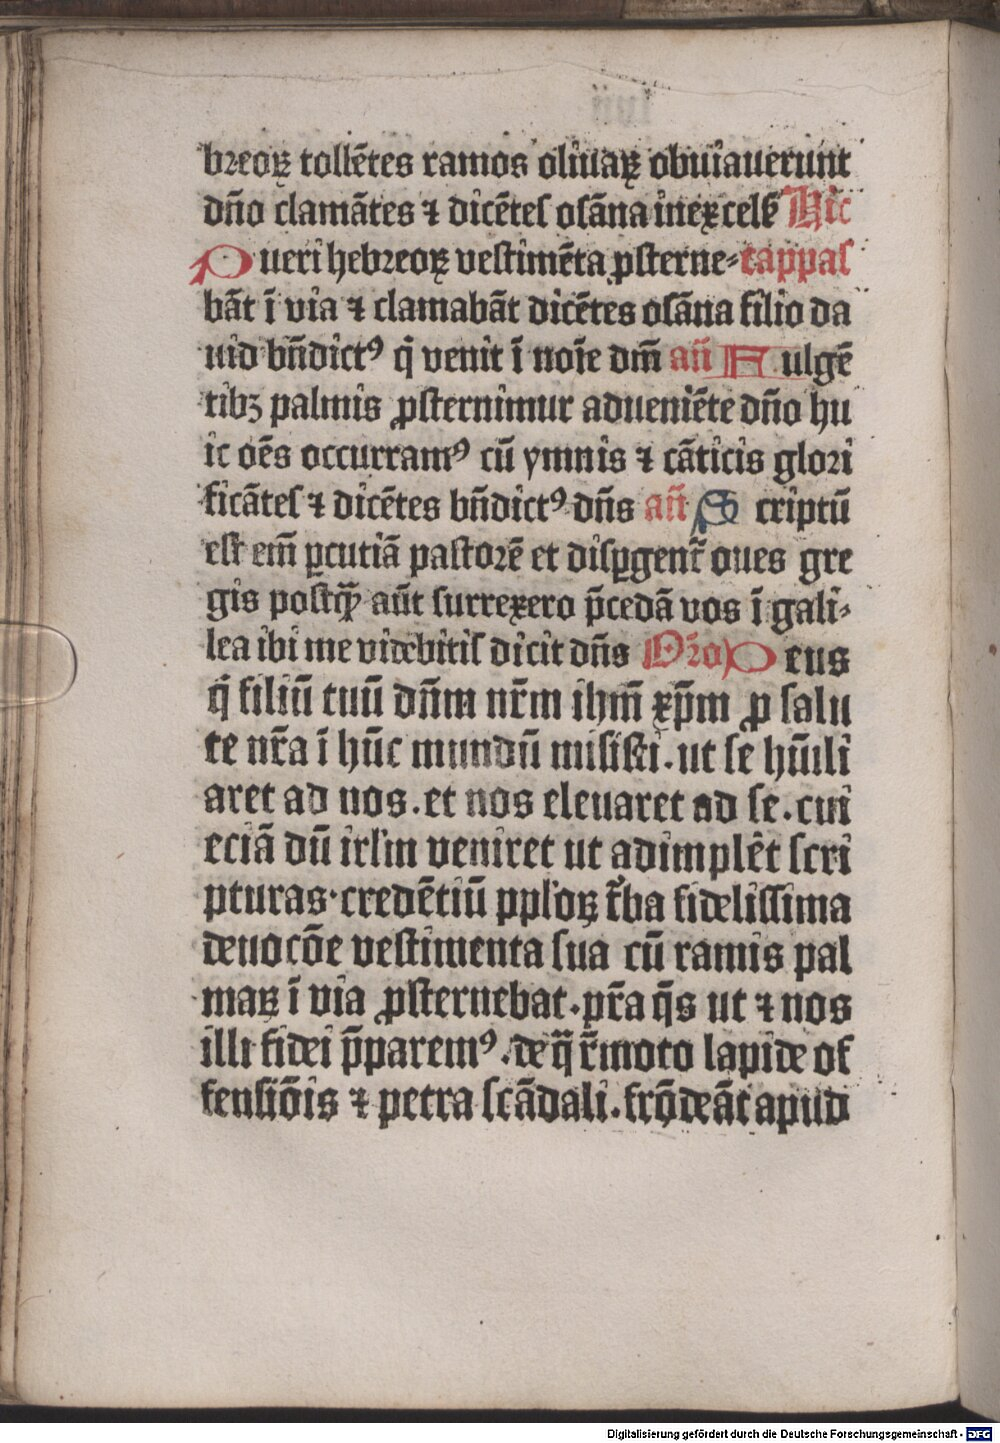 breoꝝ tollētes ramos oliuaꝝ obuiauerunt
dn̄o clamātes ⁊ dicētes osāna in excelẜ Hic
Pueri hebreoꝝ vestimēta ꝓsterne- cappas
bāt ī via ⁊ clamabāt dicētes osāna filio da
uid bn̄dictꝰ q̄ venit ī noīe dm̄ an̄ Fulgē
tibꝫ palmis ꝓsternimur adueniēte dn̄o hu
ic oēs occurramꝰ cū ymnis ⁊ cāticis glori
ficātes ⁊ dicētes bn̄dictꝰ dn̄s an̄ Scriptū
est em̄ ꝑcutiā pastorē et disꝑgent᷑ oues gre
gis postꝙ̄ aūt surrexero p̄cedā vos ī gali-
lea ibi me videbitis dicit dn̄s Or̄o Deus
q̄ filiū tuū dn̄m nr̄m ihm̄ xp̄m ꝓ salu
te nr̄a ī hūc mundū misisti. ut se hūili
aret ad nos. et nos eleuaret ad se. cui
eciā dū irl̄m veniret ut adimplēt scri
pturas. credētiū ppl'oꝝ t᷑ba fidelissima
deuocōe vestimenta sua cū ramis pal
maꝝ ī via ꝓsternebat. pr̄a q̄s ut ⁊ nos
illi fidei p̄paremꝰ. de q̄ r̄moto lapide of
fensiōis ⁊ petra scādali. frōdeāt apud
Digitalisierung gefördert durch die Deutsche Forschungsgemeinschaft - DFG